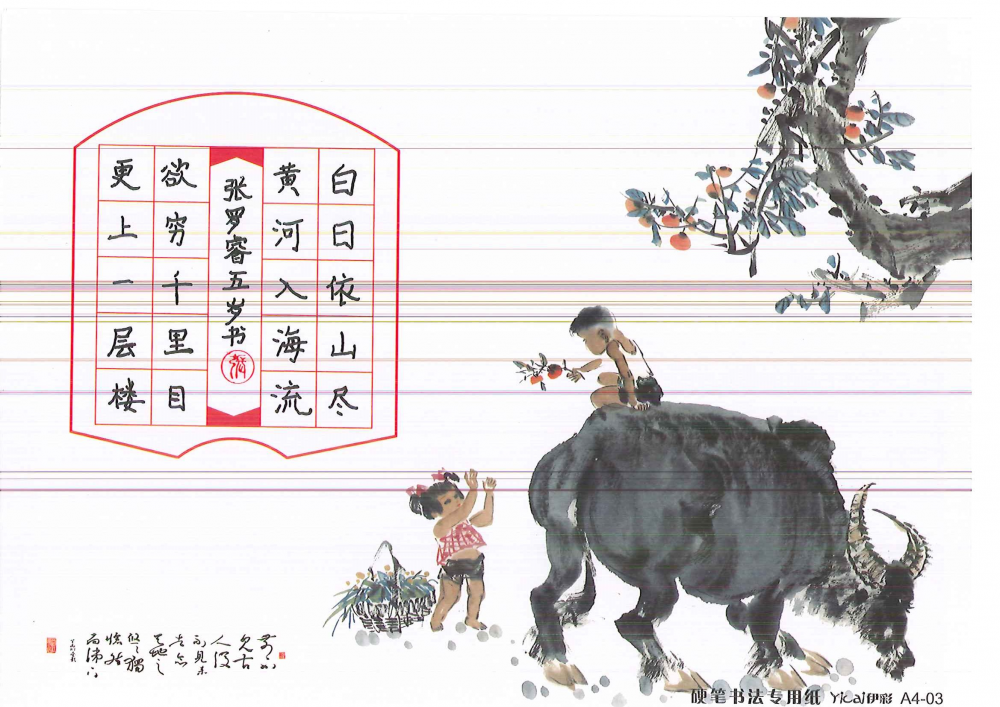 白日依山尽
黄河入海流
张罗睿五岁书
欲穷千里目
更上一层楼
硬笔书法专用纸 Yicai伊彩 A4-03